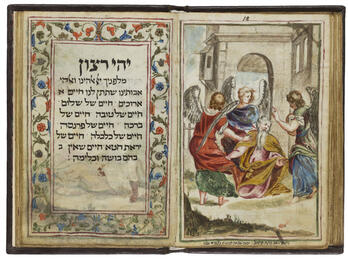 יהי רצון
מלפניך
אבותינו שתתן לנו חיים א
ארוכים חיים של שלום
חיים של טובה חיים של
ברכה חיים של פרנסה
חיים של כלכלה חיים של
יראת חטא חיים שאין ב
בהם בושה וכלימה:
18